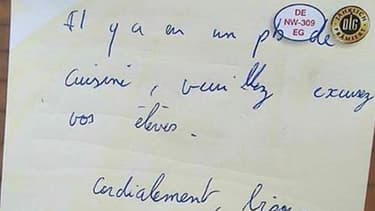 Il y a eu un pb de
cuisine, veuillez excusez
vos élèves.
Cordialement,
DE
NW-309
EG
JÄHRLICH
DLG
PRÄMIERT